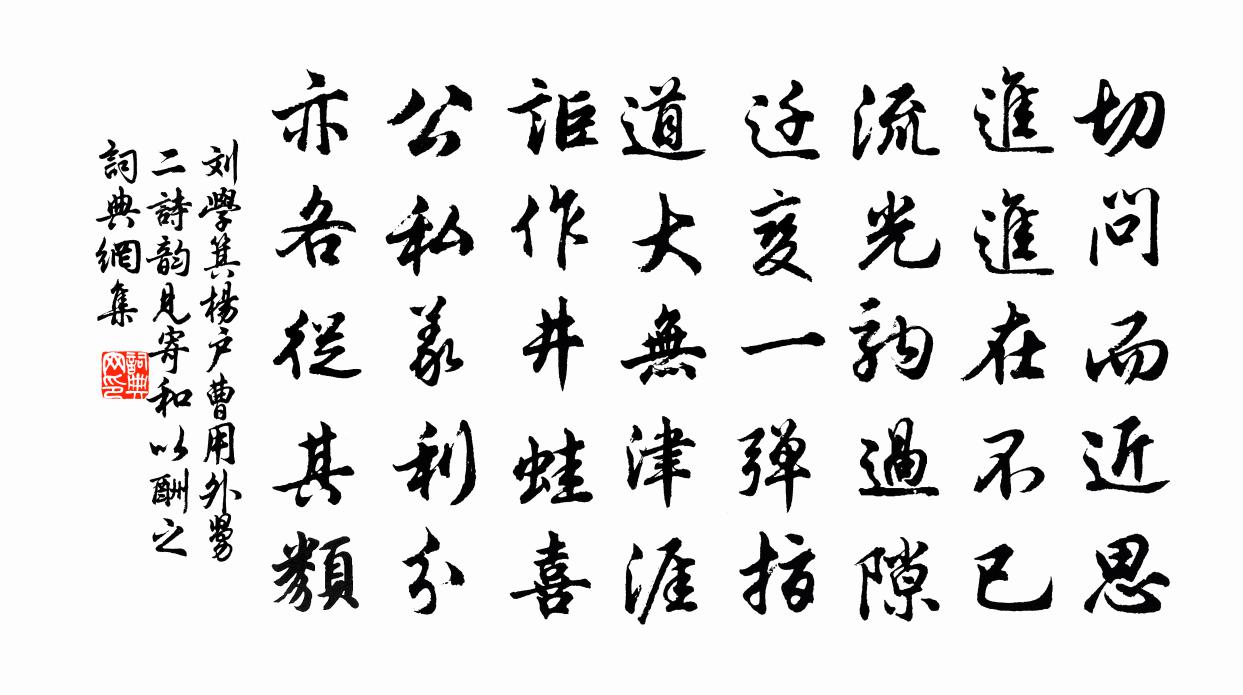 切問而近思
進進在不已
流光駒過隙
迁變一彈指
道大無津涯
詎作井蛙喜
公私義利分
亦各從其類
刘學箕楊户曹用外舅
二詩韵見寄和以酬之
詞典網集
詞典网印